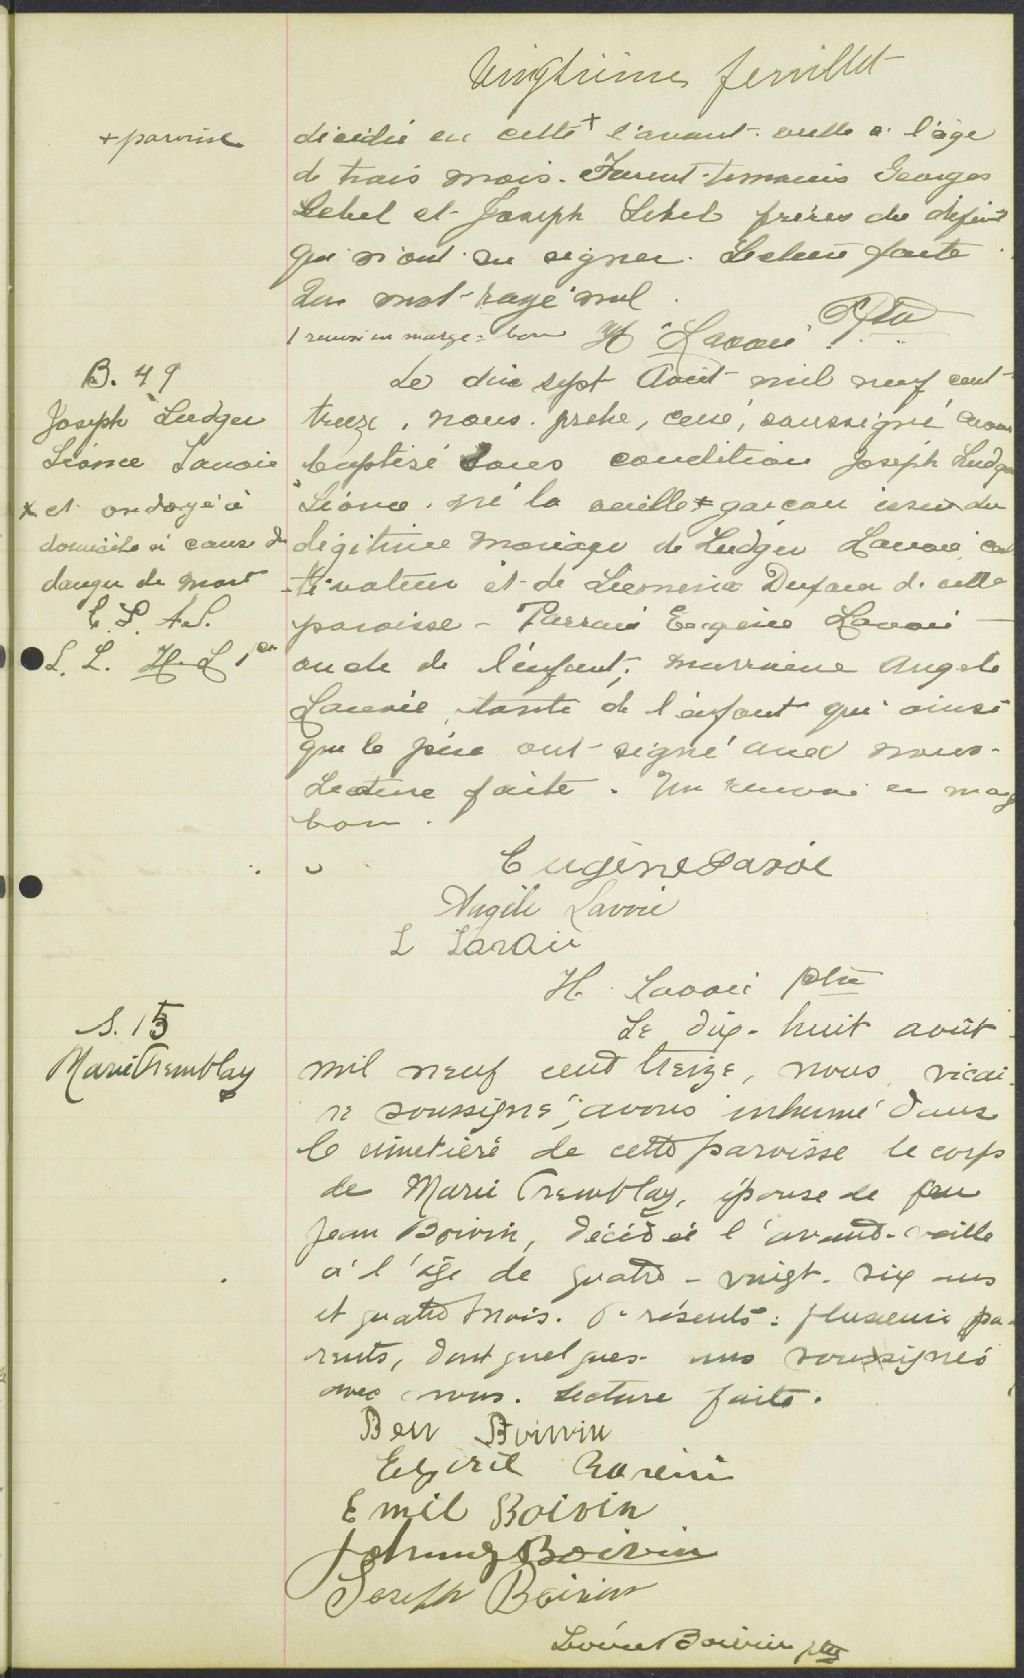 Vingtième feuillet
+ paroisse
décédé en cette + l'avant-veille à l'âge
de trois mois. Furent témoins Georges
Lebel et Joseph Lebel frères du défunt
qui n'ont su signer. Lecture faite
Un mot rayé nul.
1 renvoi en marge = bon H Lavoie Ptre
B. 49
Joseph Ludger
Léonce Lavoie
x et ondoyé à
domicile à cause du
danger de mort
E. L. A.L.
L. L. H. L
Le dix sept Août mil neuf cent
treize, nous prêtre, curé, soussigné avons
baptisé sous condition Joseph Ludger
Léonce, né la veille x garçon issu du
légitime mariage de Ludger Lavoie, cul
-tivateur et de Dufour de cette
paroisse - Parrain Eugène Lavoie
oncle de l'enfant; marraine Angèle
Lavoie, tante de l'enfant qui ainsi
que le père ont signé avec nous.
Lecture faite. Un renvoi en marg
bon.
Eugène Lavoie
Angèle Lavoie
L Lavoie
H. Lavoie ptre
S. 15
Marie Tremblay
Le dix-huit août
mil neuf cent treize, nous, vicai-
re soussigné, avons inhumé dans
le cimetière de cette paroisse le corps
de Marie Tremblay, épouse de feu
Jean Boivin, décédée l'avant-veille
à l'âge de quatre-vingt-six ans
et quatre mois. Présents: plusieurs pa-
rents, dont quelques-uns soussignés
avec nous. Lecture faite.
Ben Boivin
Emil Boivin
Johnny Boivin
Joseph Boivin
Boivin ptre